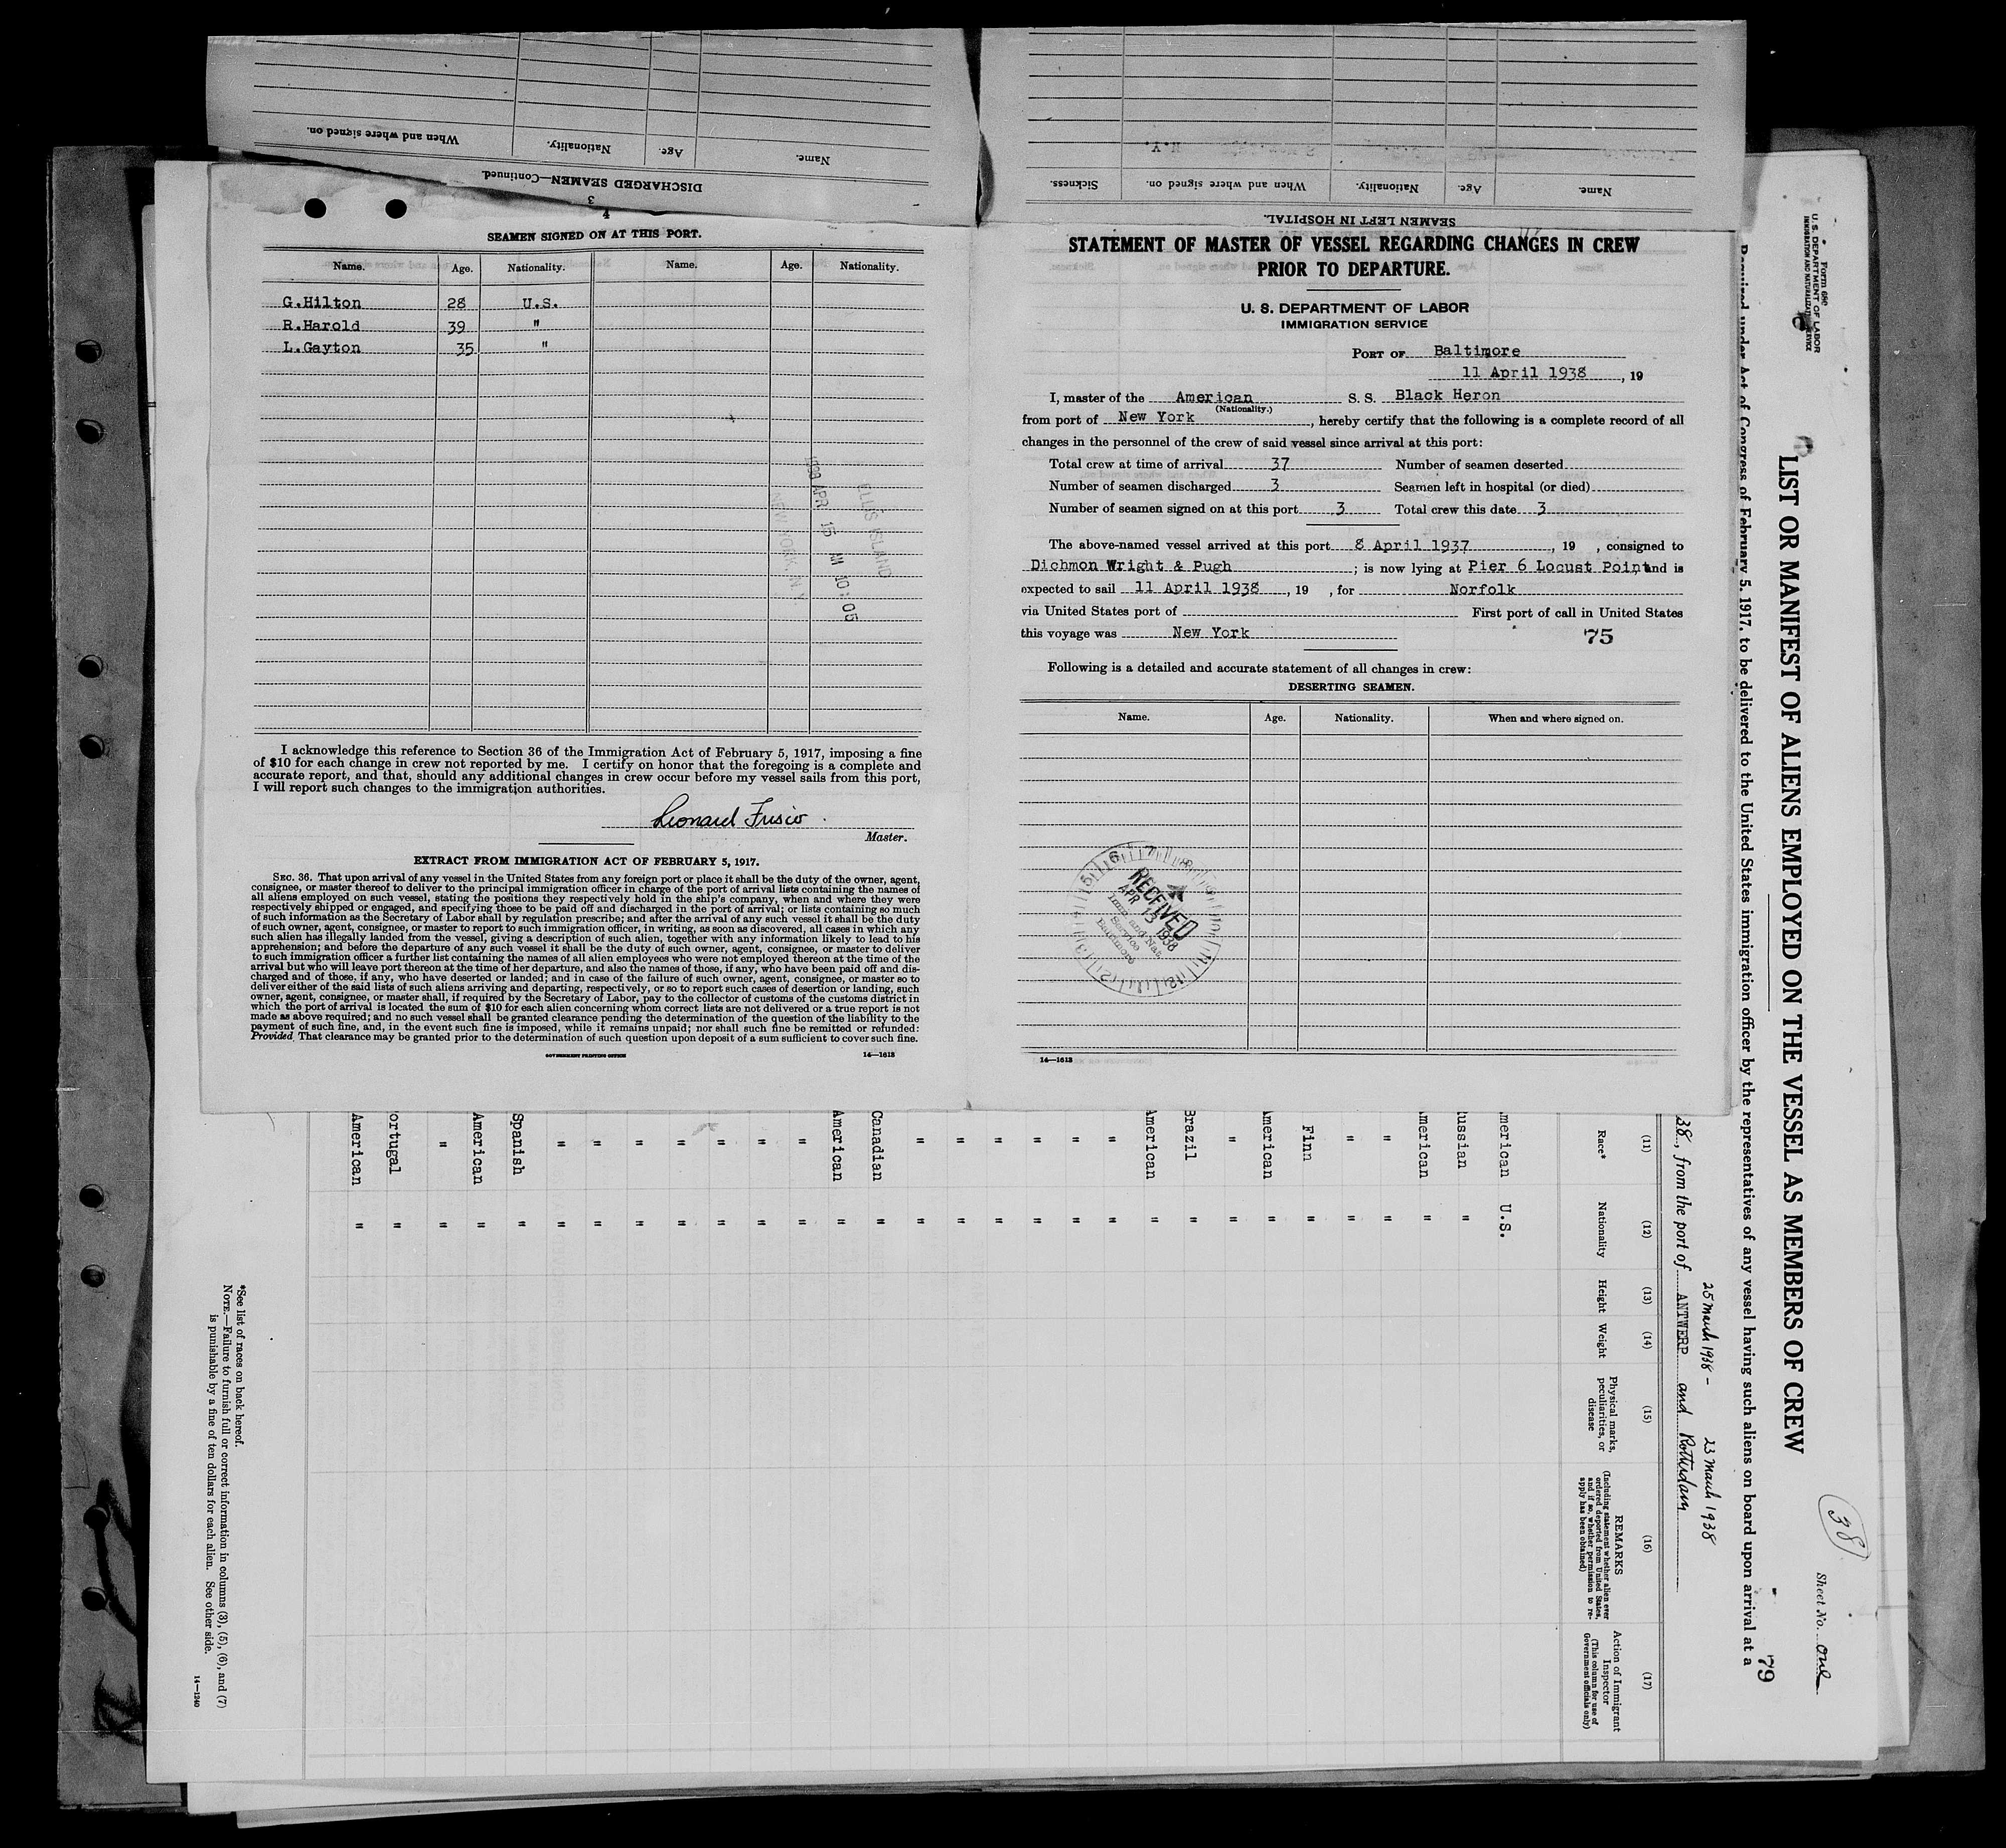 When and where signed on.
Nationality.
Age.
Name.
DISCHARGED SEAMEN—Continued.
3
Sickness.
When and where signed on.
Nationality.
Age.
Name.
SEAMEN LEFT IN HOSPITAL.
4
SEAMEN SIGNED ON AT THIS PORT.
Name. Age. Nationality. Name. Age. Nationality.
G.Hilton 28 U.S.
R.Harold 39 "
L.Gayton 35 "
ELLIS ISLAND
1938 APR 15 AM 10:05
NEW YORK, N.Y.
I acknowledge this reference to Section 36 of the Immigration Act of February 5, 1917, imposing a fine
of $10 for each change in crew not reported by me. I certify on honor that the foregoing is a complete and
accurate report, and that, should any additional changes in crew occur before my vessel sails from this port,
I will report such changes to the immigration authorities.
Leonard Frisco
Master.
EXTRACT FROM IMMIGRATION ACT OF FEBRUARY 5, 1917.
SEC. 36. That upon arrival of any vessel in the United States from any foreign port or place it shall be the duty of the owner, agent,
consignee, or master thereof to deliver to the principal immigration officer in charge of the port of arrival lists containing the names of
all aliens employed on such vessel, stating the positions they respectively hold in the ship's company, when and where they were
respectively shipped or engaged, and specifying those to be paid off and discharged in the port of arrival; or lists containing so much
of such information as the Secretary of Labor shall by regulation prescribe; and after the arrival of any such vessel it shall be the duty
of such owner, agent, consignee, or master to report to such immigration officer, in writing, as soon as discovered, all cases in which any
such alien has illegally landed from the vessel, giving a description of such alien, together with any information likely to lead to his
apprehension; and before the departure of any such vessel it shall be the duty of such owner, agent, consignee, or master to deliver
to such immigration officer a further list containing the names of all alien employees who were not employed thereon at the time of the
arrival but who will leave port thereon at the time of her departure, and also the names of those, if any, who have been paid off and dis-
charged and of those, if any, who have deserted or landed; and in case of the failure of such owner, agent, consignee, or master so to
deliver either of the said lists of such aliens arriving and departing, respectively, or so to report such cases of desertion or landing, such
owner, agent, consignee, or master shall, if required by the Secretary of Labor, pay to the collector of customs of the customs district in
which the port of arrival is located the sum of $10 for each alien concerning whom correct lists are not delivered or a true report is not
made as above required; and no such vessel shall be granted clearance pending the determination of the question of the liability to the
payment of such fine, and, in the event such fine is imposed, while it remains unpaid; nor shall such fine be remitted or refunded:
Provided, That clearance may be granted prior to the determination of such question upon deposit of a sum sufficient to cover such fine.
GOVERNMENT PRINTING OFFICE 14—1613
STATEMENT OF MASTER OF VESSEL REGARDING CHANGES IN CREW
PRIOR TO DEPARTURE.
U. S. DEPARTMENT OF LABOR
IMMIGRATION SERVICE
PORT OF Baltimore
11 April 1938, 19
I, master of the American S. S. Black Heron
(Nationality.)
from port of New York, hereby certify that the following is a complete record of all
changes in the personnel of the crew of said vessel since arrival at this port:
Total crew at time of arrival 37 Number of seamen deserted
Number of seamen discharged 3 Seamen left in hospital (or died)
Number of seamen signed on at this port 3 Total crew this date 3
The above-named vessel arrived at this port 8 April 1937, 19 , consigned to
Dichmon Wright & Pugh; is now lying at Pier 6 Locust Point and is
expected to sail 11 April 1938, 19 , for Norfolk
via United States port of First port of call in United States
this voyage was New York
75
Following is a detailed and accurate statement of all changes in crew:
DESERTING SEAMEN.
Name. Age. Nationality. When and where signed on.
RECEIVED
APR 13 1938
Imm. and Nat.
Service
Baltimore
14—1613
Form 680
U. S. DEPARTMENT OF LABOR
IMMIGRATION AND NATURALIZATION SERVICE
LIST OR MANIFEST OF ALIENS EMPLOYED ON THE VESSEL AS MEMBERS OF CREW
38
Sheet No. one
Required under Act of Congress of February 5, 1917, to be delivered to the United States immigration officer by the representatives of any vessel having such aliens on board upon arrival at a
79
25 March 1938 - 23 March 1938
38, from the port of ANTWERP and Rotterdam
(11) (12) (13) (14) (15) (16) (17)
Race*
Nationality
Height
Weight
Physical marks, peculiarities, or disease
REMARKS
(Including statement whether alien ever ordered deported from United States, and if so, whether permission to re-apply has been obtained)
Action of Immigrant Inspector
(This column for use of Government officials only)
merican U.S.
ussian "
merican "
" "
" "
Finn "
merican "
" "
Brazil "
American "
" "
" "
" "
" "
" "
" "
Canadian "
American "
" "
" "
" "
" "
" "
" "
" "
Spanish "
American "
" "
ortugal "
American "
*See list of races on back hereof.
NOTE.—Failure to furnish full or correct information in columns (3), (5), (6), and (7)
is punishable by a fine of ten dollars for each alien. See other side.
14—1240